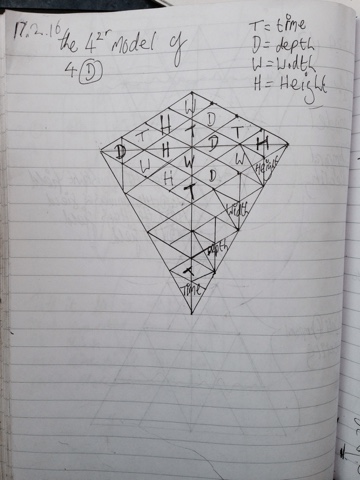 17.2.16
the 4²ʳ model of
4 D
T = time
D = depth
W = Width
H = Height
W
H T D
T H D T
D H W D W H
W H D Height
T
Width
Depth
T
Time